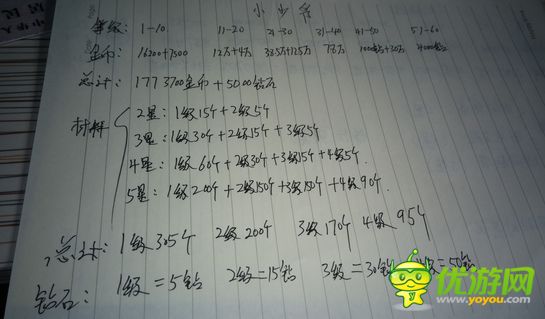 小少爷
等级: 1-10 11-20 21-30 31-40 41-50 51-60
金币: 16200+7500 12万+4万 38.5万+12.5万 78万
总计: 1773700金币+5000钻石
材料
2星: 1级15个+2级5个
3星: 1级30个+2级15个+3级5个
4星: 1级60个+2级30个+3级15个+4级5个
5星: 1级200个+2级150个+3级150个+4级90个
总计: 1级305个 2级200个 3级170个 4级95个
钻石: 1级=5钻 2级=15钻 3级=30钻 级=50钻
优游网
www.yoyou.com